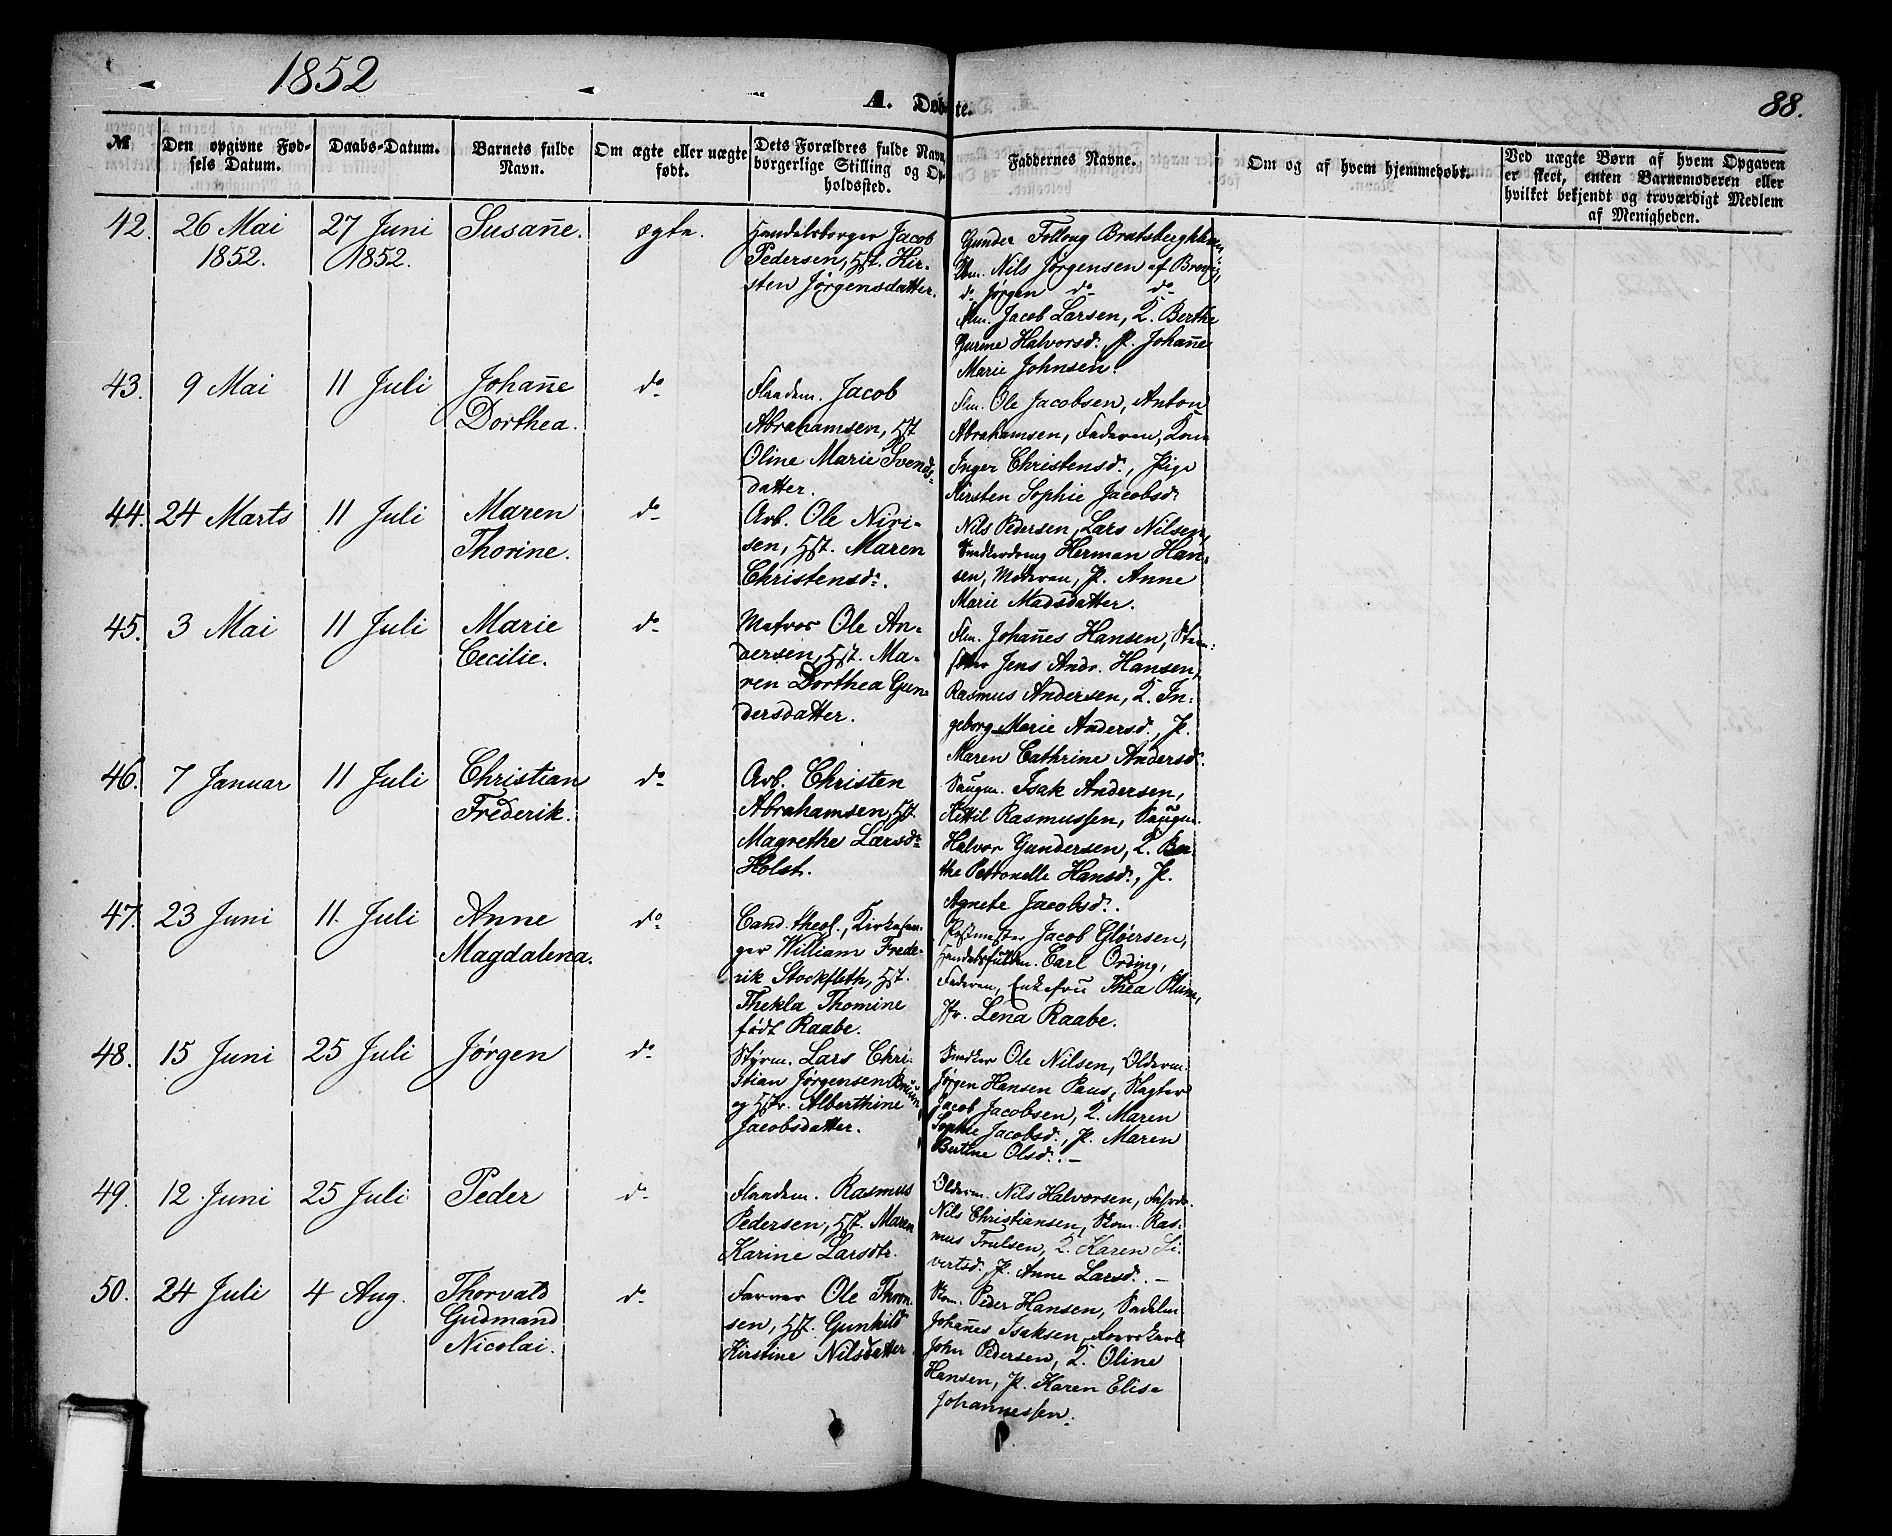 1852
A. Døbte.
88.
№
Den opgivne Fød-
sels Datum.
Daabs-Datum.
Barnets fulde
Navn.
Om ægte eller uægte
født.
Dets Forældres fulde Navn,
borgerlige Stilling og Op-
holdssted.
Faddernes Navne.
Om og af hvem hjemmedøbt.
Ved uægte Børn af hvem Opgaven
er skeet, enten Barnemoderen eller
hvilket bekjendt og troværdigt Medlem
af Menigheden.
42.
26 Mai
1852.
27 Juni
1852.
Susan̄e.
ægte.
Handelsborger Jacob
Pedersen, Hst. Kir-
sten Jørgensdatter.
Gunder Folloug Bratsbergkleven,
Skm. Nils Jørgensen af Brevig,
do Jørgen do do
Flm. Jacob Larsen, K. Berthe
Gurine Halvorsd., P. Johan̄e
Marie Johnsen.
43.
9 Mai
11 Juli
Johan̄e
Dorthea.
do
Flaadem. Jacob
Abrahamsen, Hst
Oline Marie Svends-
datter.
Flm. Ole Jacobsen, Anton
Abrahamsen, Faderen, Kone
Inger Christensd., Pige
Kirsten Sophie Jacobsd
44.
24 Marts
11 Juli
Maren
Thorine.
do
Arb. Ole Niri-
sen, Hst. Maren
Christensd.
Nils Pedersen, Lars Nilsen,
Snedkerdreng Herman Han-
sen, Moderen, P. Anne
Marie Madsdatter.
45.
3 Mai
11 Juli
Marie
Cecilie.
do
Matros Ole An-
dersen, Hst. Ma-
ren Dorthea Gun-
dersdatter.
Flm. Johan̄es Hansen,
Jens Andr. Hansen,
Rasmus Andersen, K. In-
geborg Marie Andersd., P.
Maren Cathrine Andersd.
46.
7 Januar
11 Juli
Christian
Frederik.
do
Arb. Christen
Abrahamsen, Hst.
Magrethe Larsd.
Holst.
Saugm. Isak Andersen,
Kittil Rasmussen, Saugm.
Halvor Gundersen, K. Ber-
the Petronelle Hansd., P.
Agnete Jacobsd.
47.
23 Juni
11. Juli
Anne
Magdalena.
do
Cand. theol., Kirkesan-
ger William Frede-
rik Stockfleth, Hst.
Thekla Thomine
født Raabe.
Postmester Jacob Gløersen,
Handelsfuldm. Carl Ording,
Faderen, Enkefru Thea Blum,
Jfr. Lena Raabe.
48.
15 Juni
25 Juli
Jørgen
do
Styrm. Lars Chri-
stian Jørgensen Bruun
og Hstr. Alberthine
Jacobsdatter.
Snedker Ole Nilsen, Olderm.
Jørgen Hansen Paus, Slagter
Jacob Jacobsen, K. Maren
Sophie Jacobsd., P. Maren
Bertine Olsd. –
49.
12 Juni
25 Juli
Peder
do
Flaadem. Rasmus
Pedersen, Hst. Maren
Karine Larsdtr.
Olderm. Nils Halvorsen,
Nils Christiansen, Skom. Ras-
mus Trulsen, K. Karen Si-
vertsd., P. Anne Larsd. –
50.
24 Juli
4 Aug.
Thorvald
Gudmand
Nicolai.
do
Farver Ole Thom-
sen, Hst. Gunhild
Kirstine Nilsdatter.
Skom. Peder Hansen, Sadelm
Johan̄es Isaksen,
John Pedersen, K. Oline
Hansen, P. Karen Elise
Johannessen.